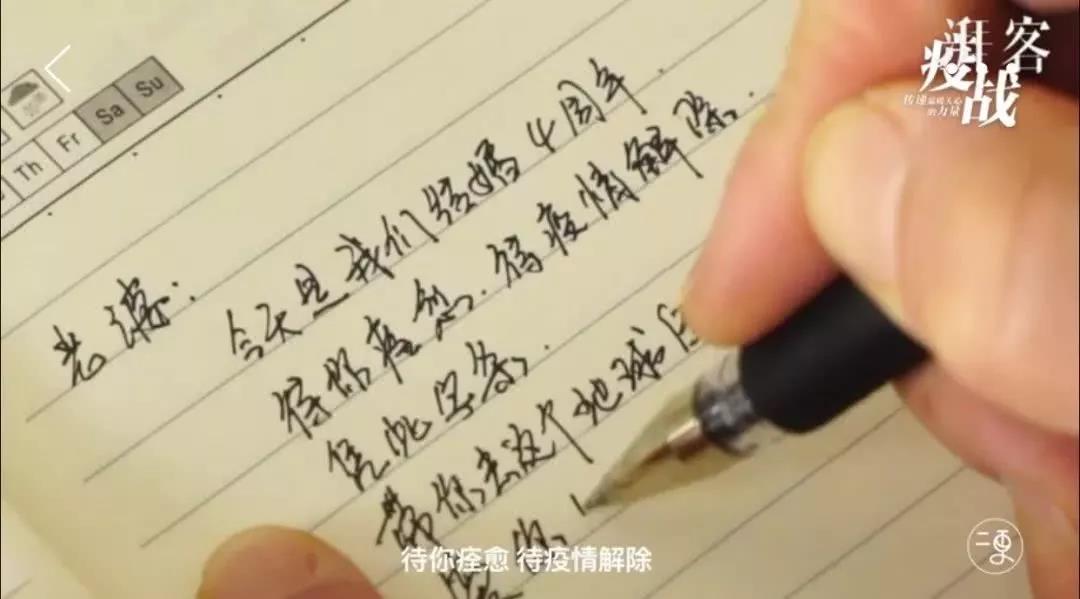 Th Fr Sa Su
逛客
疫战
传递温暖人心
的力量
光谦:
今天是我们结婚4周年.
待你痊愈.待疫情解除.
凭此字条.
带你去这个地球
你
待你痊愈 待疫情解除
二更